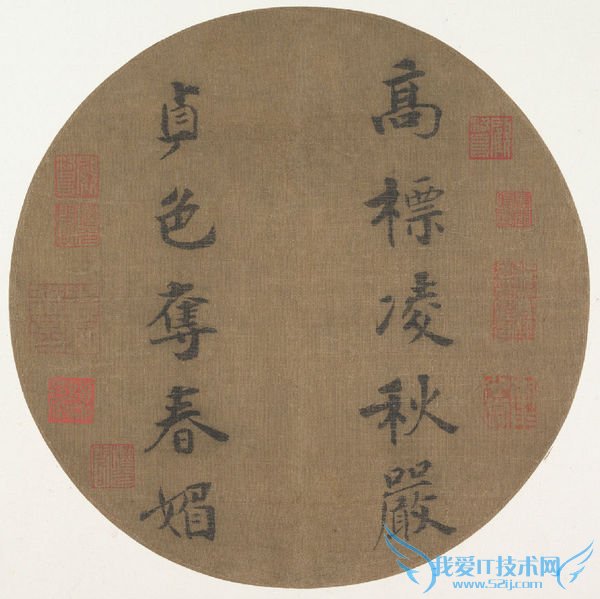 高標凌秋嚴
貞色奪春媚
我爱IT技术网
www.52ij.com